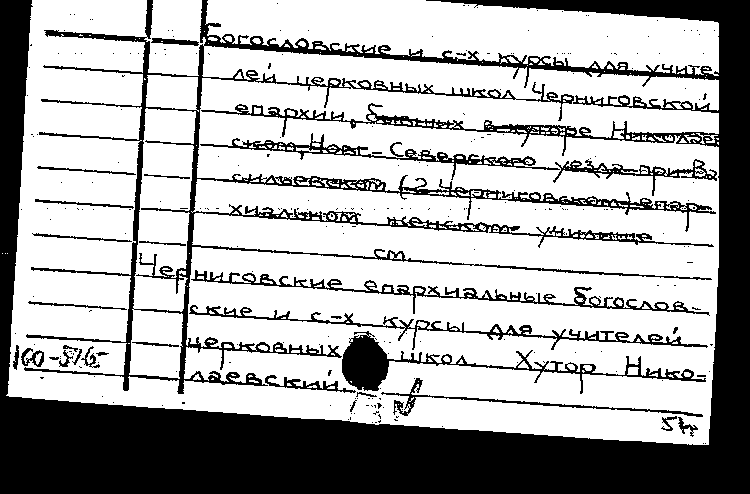 Богословские и с.-х. курсы для учите-
лей церковных школ Черниговской
епархии, бывших в хуторе Николаев
ском, Новг.-Северского уезда при Ва
сильевском (2 Черниговском) епар-
хиальном женском училище
см.
Черниговские епархиальные богослов-
ские и с.-х. курсы для учителей
церковных школ. Хутор Нико-
лаевский.
100-576-